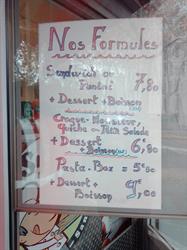 Nos Formules
Sandwich ou
Panini 7,80
+ Dessert + Boisson
Croque-Monsieur,
Quiche - Salade
+ Dessert
+ Boisson 6,80
Pasta-Box = 5€50
+ Dessert +
Boisson 9,00